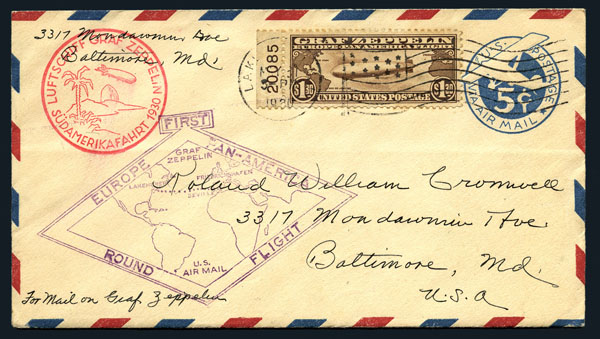 3317 Mondawmin Ave
Baltimore, Md.
LUFTSCHIFF GRAF ZEPPELIN
SÜDAMERIKAFAHRT 1930
20085
GRAF ZEPPELIN
EUROPE-PAN AMERICA FLIGHT
$1.30 $1.30
UNITED STATES POSTAGE
U.S. POSTAGE
5¢
VIA AIR MAIL
FIRST
EUROPE PAN-AMERICA
GRAF
ZEPPELIN
FRIEDRICHSHAFEN
SEVILLE
ROUND FLIGHT
U.S.
AIR MAIL
Roland William Cromwell
3317 Mondawmin Ave.
Baltimore, Md.
U.S.A
For Mail on Graf Zeppelin